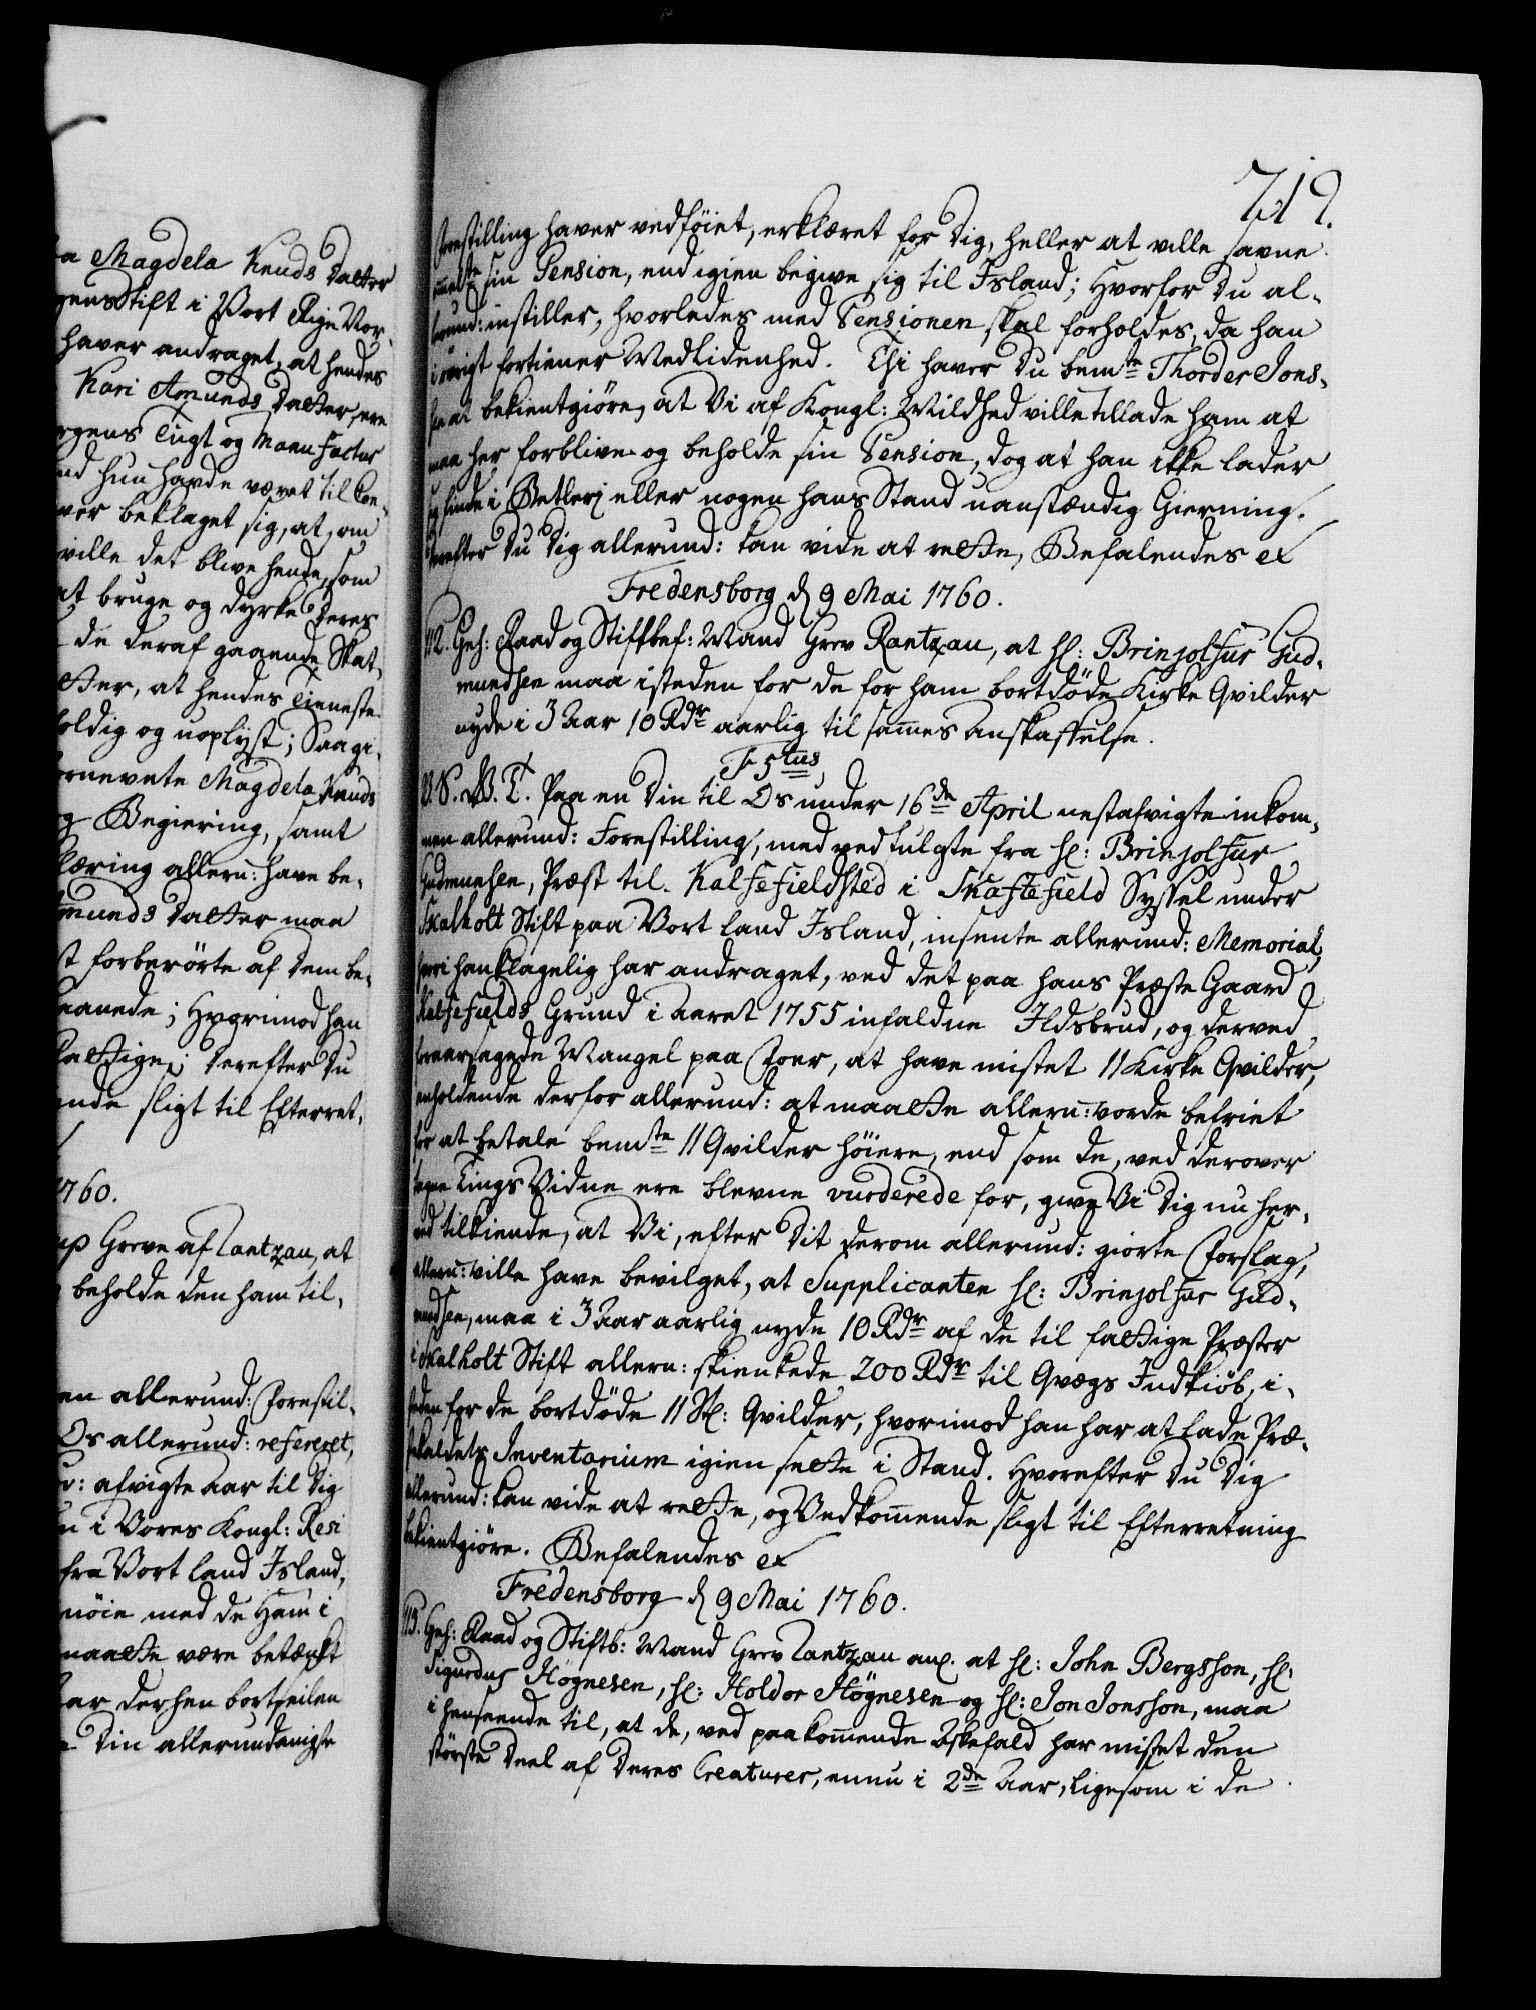 a Magdela Knuds Datter
gens Stift i Vort Rige Nor-
haver andraget, at hendes
Kari Amunds Datter, ere
rgens Tugt og Manufactur
nd hun havde været til Con-
ver beklaget sig, at, om
ville det blive hende, som
at bruge og dyrke deres
de deraf gaaende Skat-
etter, at hendes Tieneste
holdig og uoplyst; Saa gi-
ornevnte Magdela Knuds
g Begiering, samt
læring allern: have be-
munds Datter maa
t forberørte af dem be-
aanede; Hvorimod han
attige; derefter Du
ende sligt til Efterret-
1760.
up Greve af Rantzau, at
beholde den ham til-
en allerund: Forestil-
Os allerund: refereret,
r: afvigte Aar til Dig
u i Vores Kongl: Resi
fra Vort Land Island,
nöie med de Ham i
maatte være betænkt
ar derhen bortseilen
e Din allerundanigste
719.
Forestilling haver vedföiet, erklæret for Dig, heller at ville savne
sin Pension, end igien begive sig til Island; Hvorfor Du al-
lerund: instiller, hvorledes med Pensionen skal forholdes, da han
i övrigt fortiener Medlidenhed. Thi haver Du bemte Thorder Jons-
sen at bekientgiöre, at Vi af Kongl: Mildhed ville tillade ham at
maa her forblive og beholde sin Pension, dog at han ikke lader
sig finde i Betleri eller nogen hans Stand uanstændig Gierning.
Derefter Du Dig allerund: kan vide at rette, Befalendes etc
Fredensborg d 9 Mai 1760.
112. Geh: Raad og Stiftbef: Mand Grev Rantzau, at hl: Brinjolfur Gud-
mundsen maa isteden for de for ham bortdöde Kirke Qvilder
nyde i 3 Aar 10 Rdr aarlig til sammes anskaffelse.
F 5tus
V. S. G. T. Paa en Din til Os under 16de April nestafvigte inkom-
men allerund: Forestilling, med vedfulgte fra hl: Brinjolfur
Gudmunsen, Præst til Kalfefieldsted i Skaftefield Syssel under
Skalholt Stift paa Vort Land Island, insente allerund: Memorial,
hvori han klagelig har andraget, ved det paa hans Præste Gaard
Kalfefields Grund i Aaret 1755 infaldne Ildsbrud, og derved
foraarsagede Mangel paa Foer, at have mistet 11 Kirke Qvilder,
anholdende derfor allerund: at maatte allern: vorde befriet
for at betale bemte 11 Qvilder höiere, end som de, ved derover
tagne Tings Vidne ere blevne vurderede for, give Vi Dig nu her-
ved tilkiende, at Vi, efter Dit derom allerund: giorte Forslag,
allern: ville have bevilget, at Supplicanten hl: Brinjolfur Gud-
mundsen, maa i 3 Aar aarlig nyde 10 Rdr af de til fattige Præster
i Skalholt Stift allern: skienkede 200 Rdr til Qvægs Indkiöb, i-
steden for de bortdöde 11 St: Qvilder, hvorimod han har at lade Præ-
stekaldets Inventarium igien sætte i Stand. Hvorefter Du Dig
allerund: kan vide at rette, og Vedkommende sligt til Efterretning
bekientgiöre. Befalendes etc
Fredensborg d 9 Mai 1760.
113. Geh: Raad og Stiftb: Mand Grev Rantzau anl. at hl: John Bergsson, hl:
Sigurdus Högnesen, hl: Holdor Högnesen og hl: Jon Jonsson, maa
i henseende til, at de, ved paakommende Askefald har mistet den
störste Deel af deres Creaturer, ennu i 2de Aar, ligesom i de